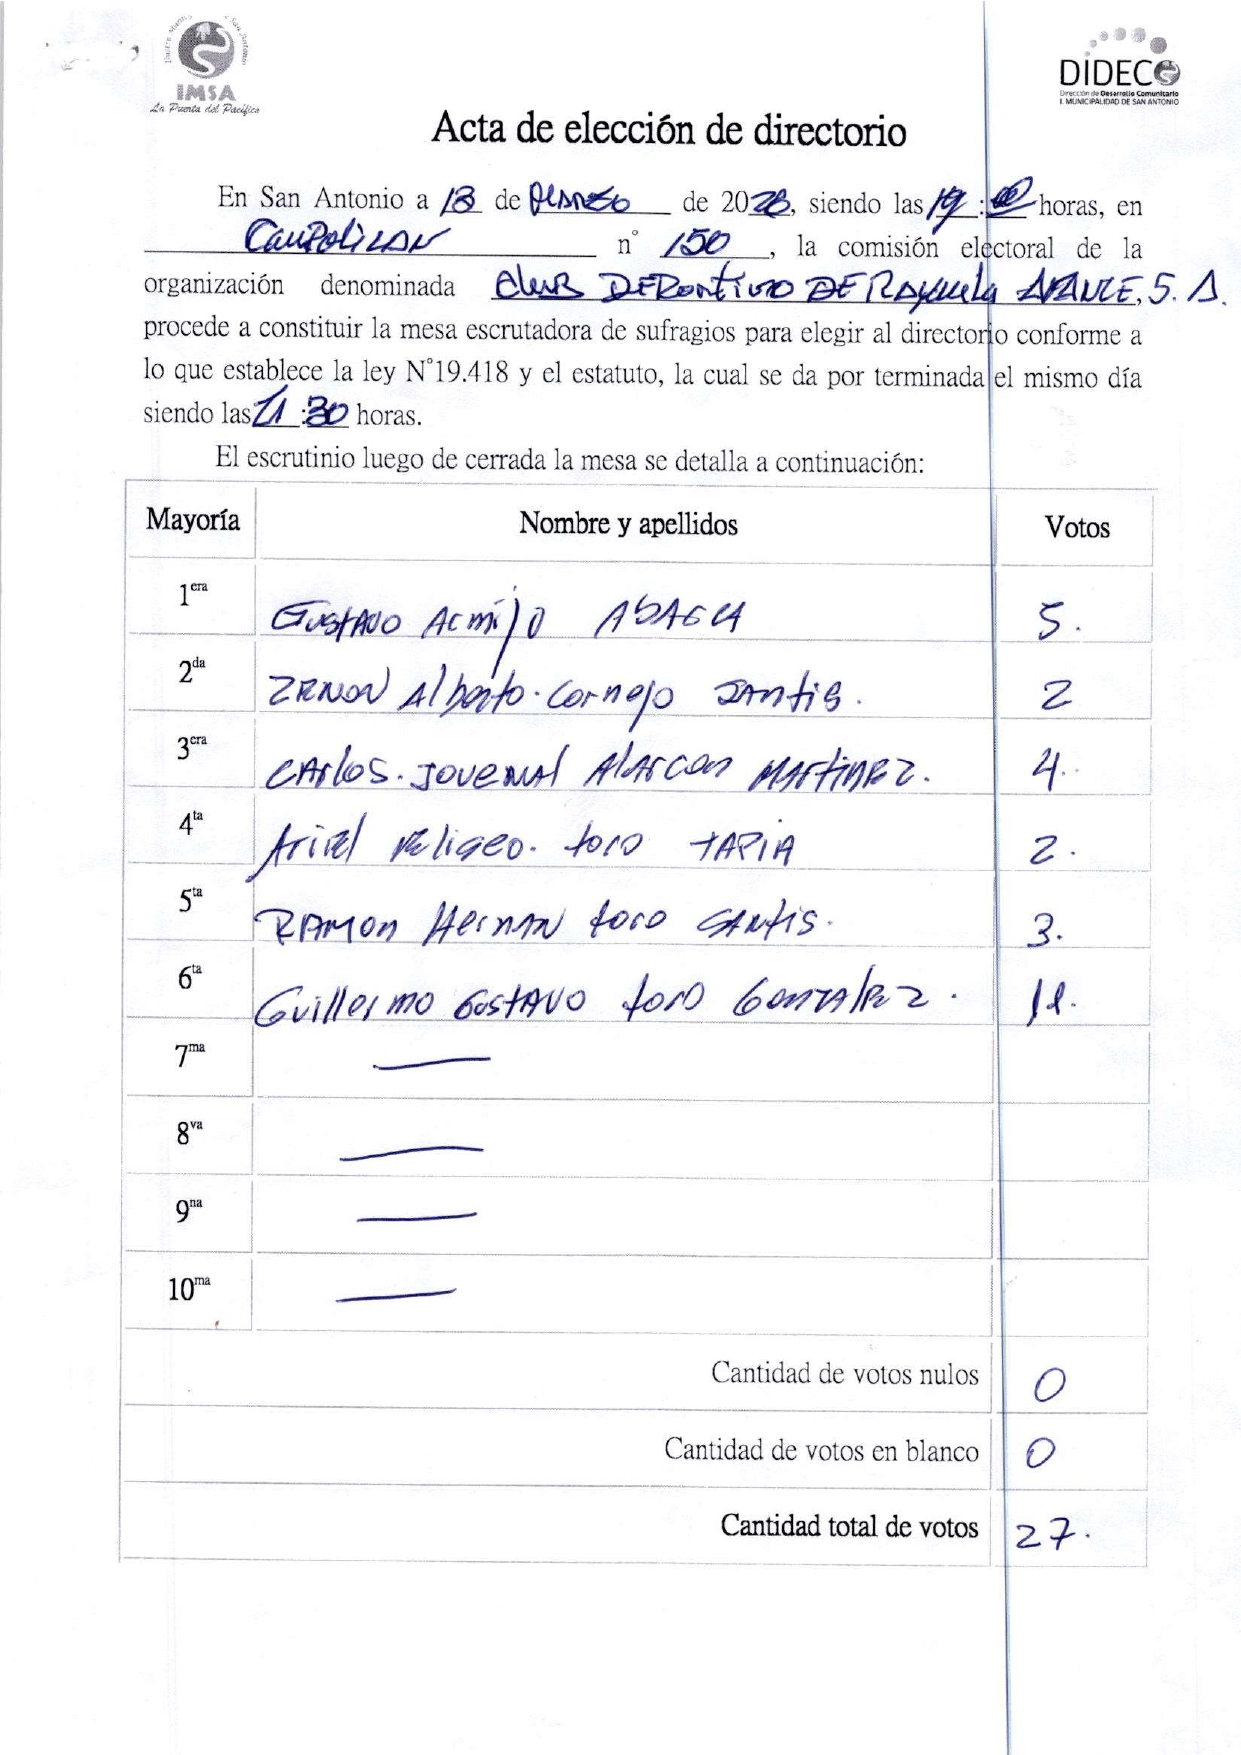 IMSA
La Puerta del Pacífico
DIDECO
Dirección de Desarrollo Comunitario
I. MUNICIPALIDAD DE SAN ANTONIO
Acta de elección de directorio
En San Antonio a 13 de Marzo de 2023, siendo las 19:00 horas, en
CauPolicAN n° 150, la comisión electoral de la
organización denominada Club DEPortivo DE RAyuela AVANCE, S. A.
procede a constituir la mesa escrutadora de sufragios para elegir al directorio conforme a
lo que establece la ley N°19.418 y el estatuto, la cual se da por terminada el mismo día
siendo las 21:30 horas.
El escrutinio luego de cerrada la mesa se detalla a continuación:
Mayoría Nombre y apellidos Votos
1era GustAVO Armijo 5.
2da ZENON Alberto. Cornejo SAntis. 2
3era CArlos. JOVENAL AlArcon MArtiNEz. 4.
4ta Ariel toro TAPIA 2.
5ta RAMon HernAN toro SANtis. 3.
6ta Guillermo GustAVO toro GonzAlEz. 11.
7ma
8va
9na
10ma
Cantidad de votos nulos 0
Cantidad de votos en blanco 0
Cantidad total de votos 27.